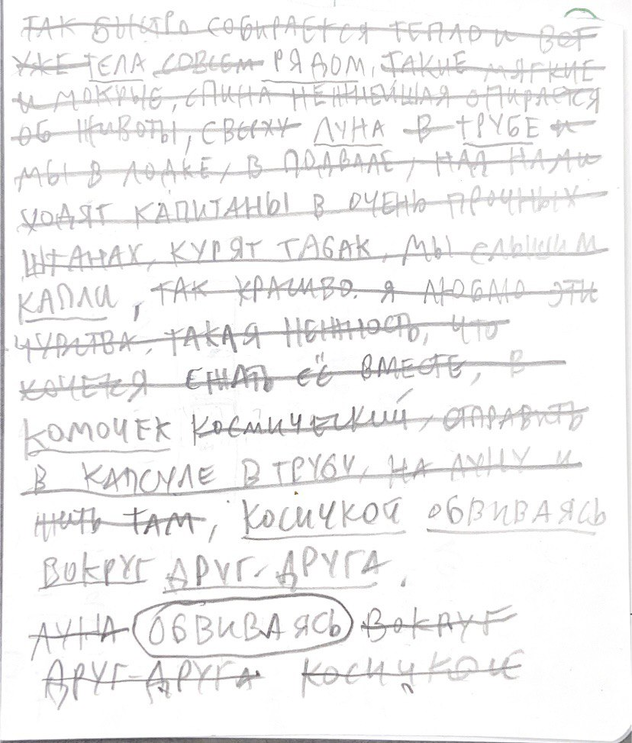 ТАК БЫСТРО СОБИРАЕТСЯ ТЕПЛО И ВОТ
УЖЕ ТЕЛА СОВСЕМ РЯДОМ, ТАКИЕ МЯГКИЕ
И МОКРЫЕ, СПИНА НЕЖНЕЙШАЯ ОПИРАЕТСЯ
ОБ ЖИВОТЫ, СВЕРХУ ЛУНА В ТРУБЕ И
МЫ В ЛОДКЕ, В ПОДВАЛЕ, НАД НАМИ
ХОДЯТ КАПИТАНЫ В ОЧЕНЬ ПРОЧНЫХ
ШТАНАХ, КУРЯТ ТАБАК, МЫ СЛЫШИМ
КАПЛИ, ТАК КРАСИВО. Я ЛЮБЛЮ ЭТИ
ЧУВСТВА, ТАКАЯ НЕЖНОСТЬ, ЧТО
ХОЧЕТСЯ СЖАТЬ ЕЁ ВМЕСТЕ, В
КОМОЧЕК КОСМИЧЕСКИЙ, ОТПРАВИТЬ
В КАПСУЛЕ В ТРУБУ, НА ЛУНУ И
ЖИТЬ ТАМ, КОСИЧКОЙ ОБВИВАЯСЬ
ВОКРУГ ДРУГ-ДРУГА.
ЛУНА ОБВИВАЯСЬ ВОКРУГ
ДРУГ-ДРУГА КОСИЧКОЙ